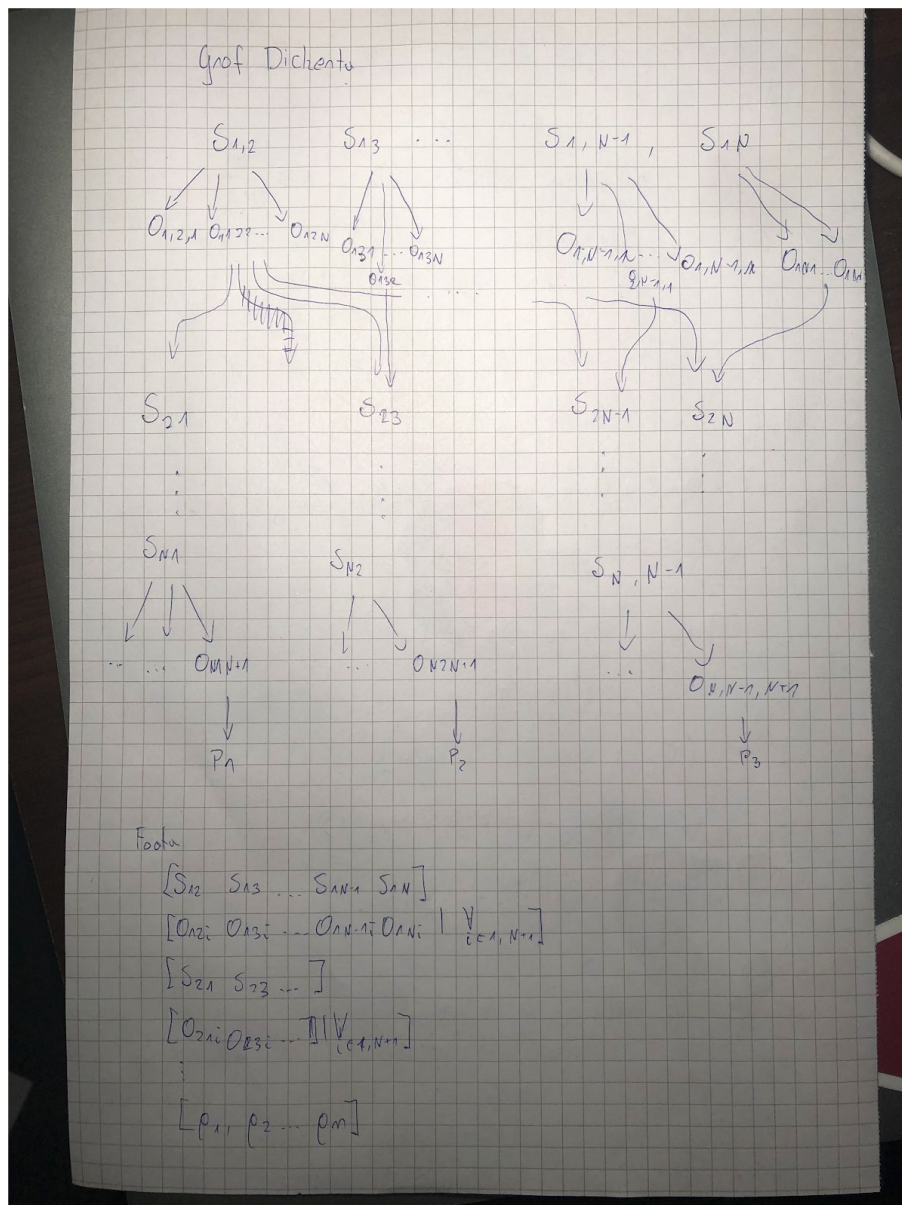 Graf Dickerta
S1,2 S13 ... S1, N-1 , S1N
O1,2,1 O122... O12N O131 ... O13N O1,N-1,1 ... O1,N-1,N O1N1 ... O1NN
O132
...
S21 S23 S2N-1 S2N
SN1 SN2 SN, N-1
... ... ON1N+1 ... ON2N+1 ... ON,N-1,N+1
P1 P2 P3
Foata
[S12 S13 ... S1N-1 S1N]
[O12i O13i ... O1N-1i O1Ni | ∀i∈1,N+1]
[S21 S23 ... ]
[O21i O23i ... | ∀i∈1,N+1]
[ρ1, ρ2 ... ρn]